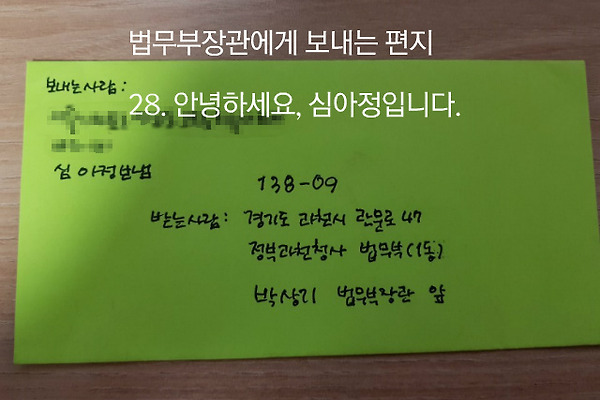 법무부장관에게 보내는 편지
보내는사람:
28. 안녕하세요, 심아정입니다.
심아정보냄
138-09
받는사람: 경기도 과천시 관문로 47
정부과천청사 법무부(1동)
박상기 법무부장관 앞